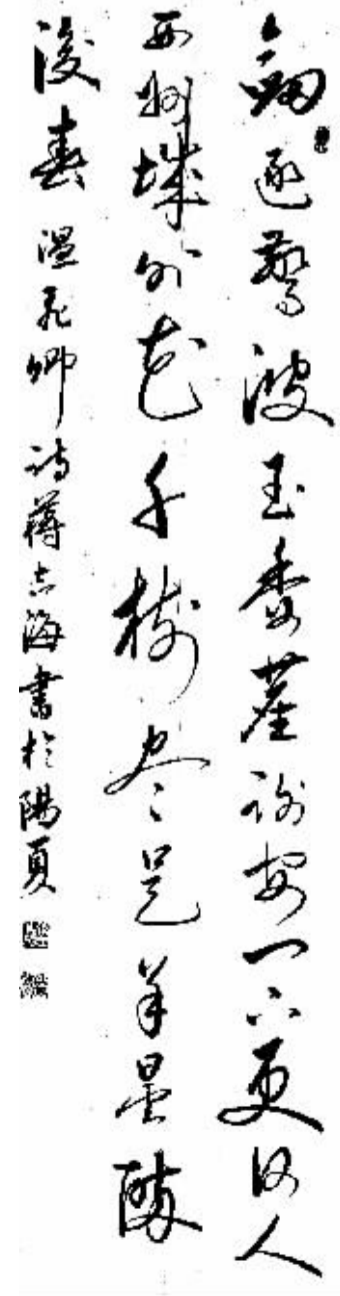 劍逐驚波玉委塵谢安门下更何人
西州城外花千树尽是羊昙醉
後春 温飛卿诗蒋志海書於陽夏